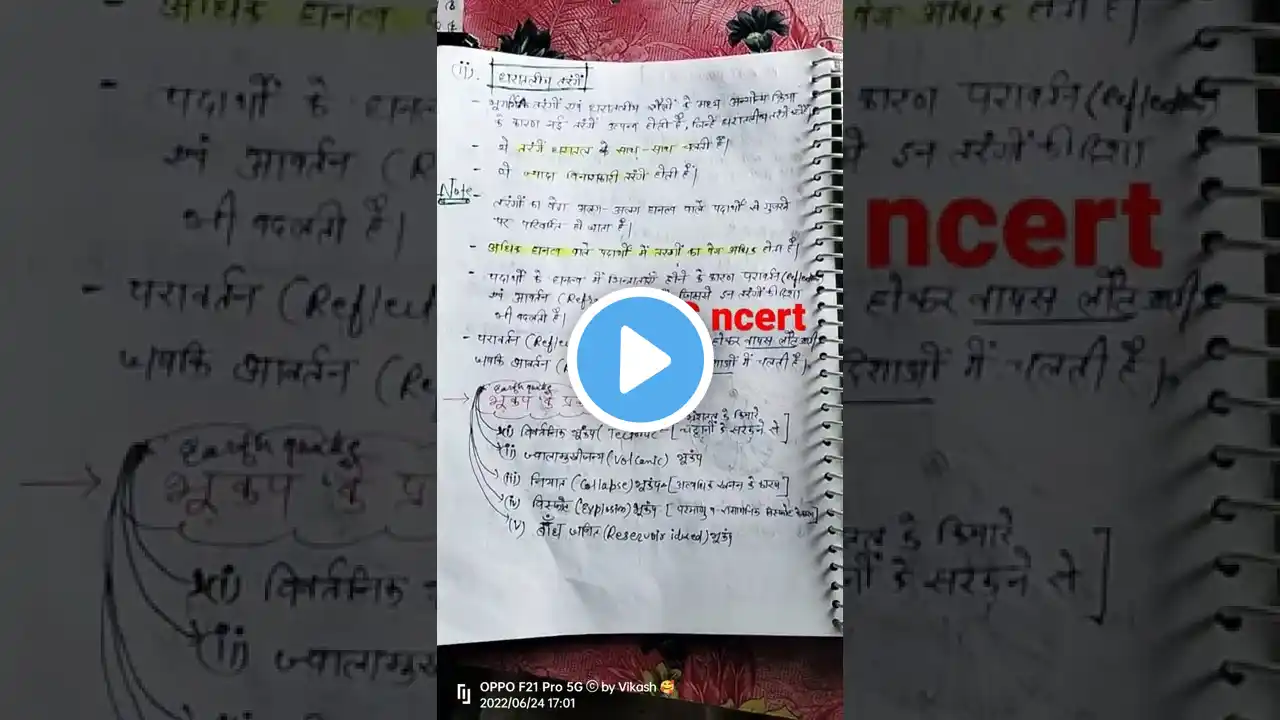 (ii). धरातलीय तरंगें
- भूगर्भिक तरंगों एवं धरातलीय शैलों के मध्य अन्योन्य क्रिया
के कारण नई तरंगें उत्पन्न होती हैं, जिन्हें धरातलीय तरंगें कहते
- ये तरंगें धरातल के साथ-साथ चलती हैं।
- ये ज्यादा विनाशकारी तरंगें होती हैं।
Note - तरंगों का वेग अलग-अलग घनत्व वाले पदार्थों से गुजरने
पर परिवर्तित हो जाता है।
- अधिक घनत्व वाले पदार्थों में तरंगों का वेग अधिक होता है।
- पदार्थों के घनत्व में भिन्नताएँ होने के कारण परावर्तन (Reflection)
एवं आवर्तन (Ref जिससे इन तरंगों की दिशा
भी बदलती है।
ncert
- परावर्तन (Reflec होकर वापस लौट
जबकि आवर्तन (R दिशाओं में चलती हैं।
earth quakes
→ भूकंप के प्र
(i) विवर्तनिक भूकंप (Tectonic - [ के किनारे
चट्टानों के सरकने से ]
(ii) ज्वालामुखीजन्य (Volcanic) भूकंप
(iii) नियात (Collapse) भूकंप - [अत्यधिक खनन के कारण]
(iv) विस्फोट (Explosion) भूकंप [ परमाणु व रासायनिक विस्फोट
(v) बाँध जनित (Reservoir iduced) भूकंप
ncert
OPPO F21 Pro 5G ⓒ by Vikash 🥰
2022/06/24 17:01